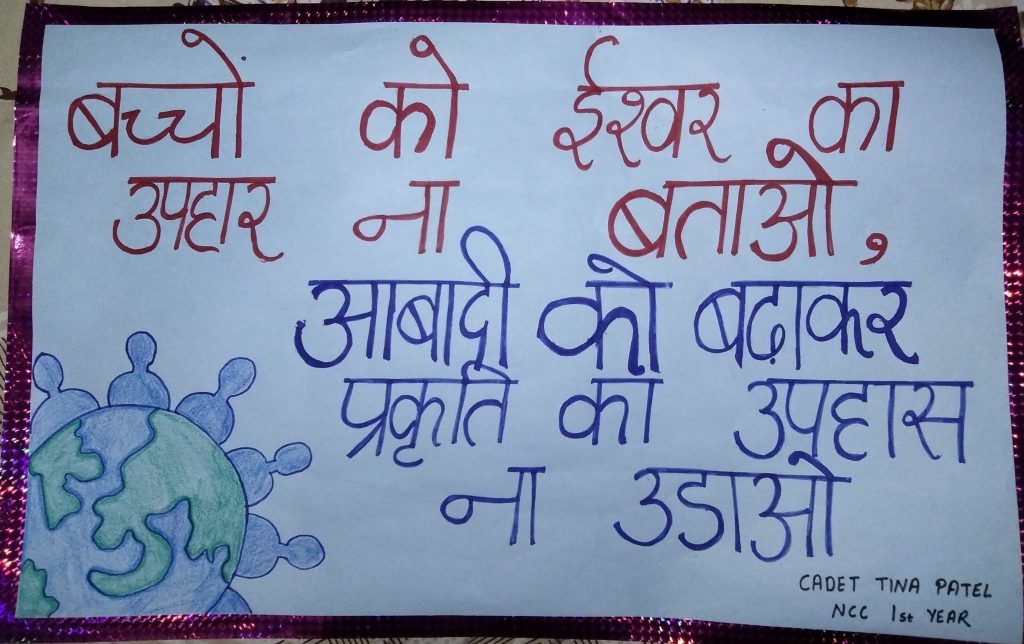 बच्चों को ईश्वर का
उपहार ना बताओ,
आबादी को बढ़ाकर
प्रकृति का उपहास
ना उडाओ
CADET TINA PATEL
NCC 1st YEAR